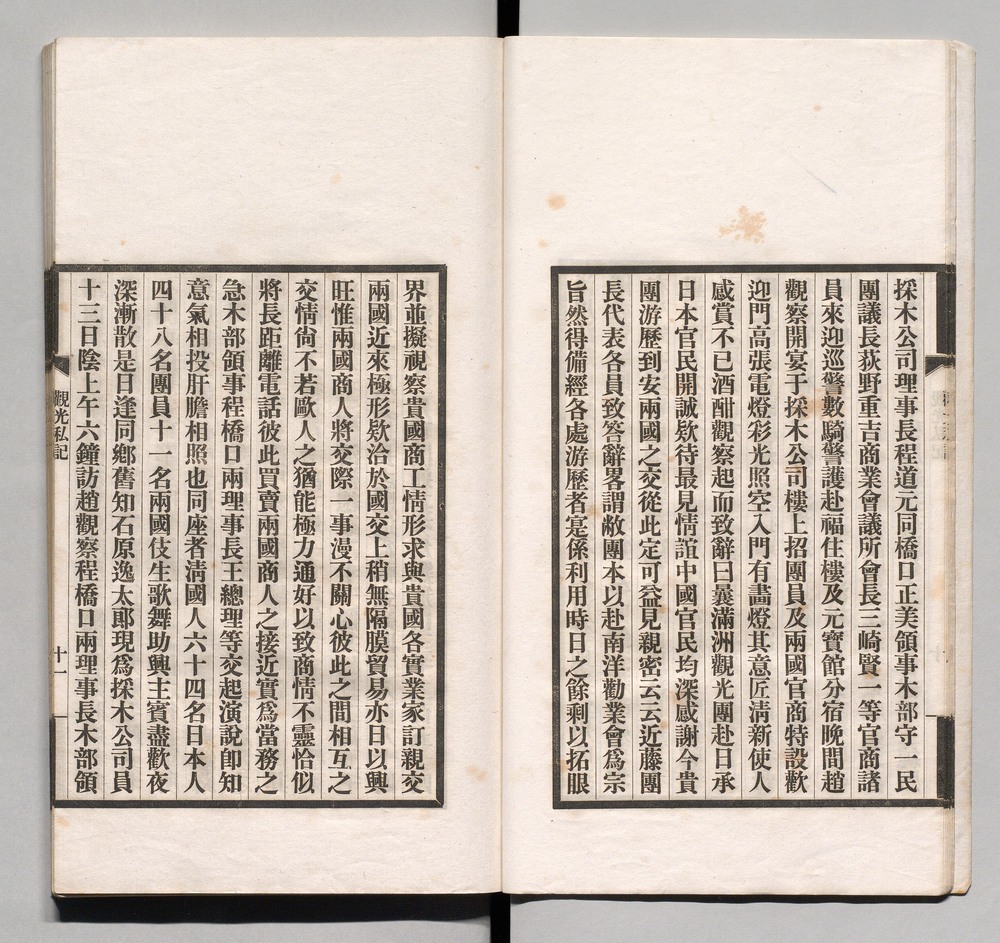 採木公司理事長程道元同橋口正美領事木部守一民
團議長荻野重吉商業會議所會長三崎賢一等官商諸
員來迎巡警數騎警護赴福住樓及元寶館分宿晚間趙
觀察開宴于採木公司樓上招團員及兩國官商特設歡
迎門高張電燈彩光照空入門有畵燈其意匠清新使人
感賞不已酒酣觀察起而致辭曰曩滿洲觀光團赴日承
日本官民開誠欵待最見情誼中國官民均深感謝今貴
團游歷到安兩國之交從此定可益見親密云云近藤團
長代表各員致答辭畧謂敝團本以赴南洋勸業會爲宗
旨然得備經各處游歷者寔係利用時日之餘剩以拓眼
界並擬視察貴國商工情形求與貴國各實業家訂親交
兩國近來極形欵洽於國交上稍無隔膜貿易亦日以興
旺惟兩國商人將交際一事漫不關心彼此之間相互之
交情尙不若歐人之猶能極力通好以致商情不靈恰似
將長距離電話彼此買賣兩國商人之接近實爲當務之
急木部領事程橋口兩理事長王總理等交起演說卽知
意氣相投肝膽相照也同座者淸國人六十四名日本人
四十八名團員十一名兩國伎生歌舞助興主賓盡歡夜
深漸散是日逢同鄉舊知石原逸太郞現爲採木公司員
十三日陰上午六鐘訪趙觀察程橋口兩理事長木部領
觀光私記
十一